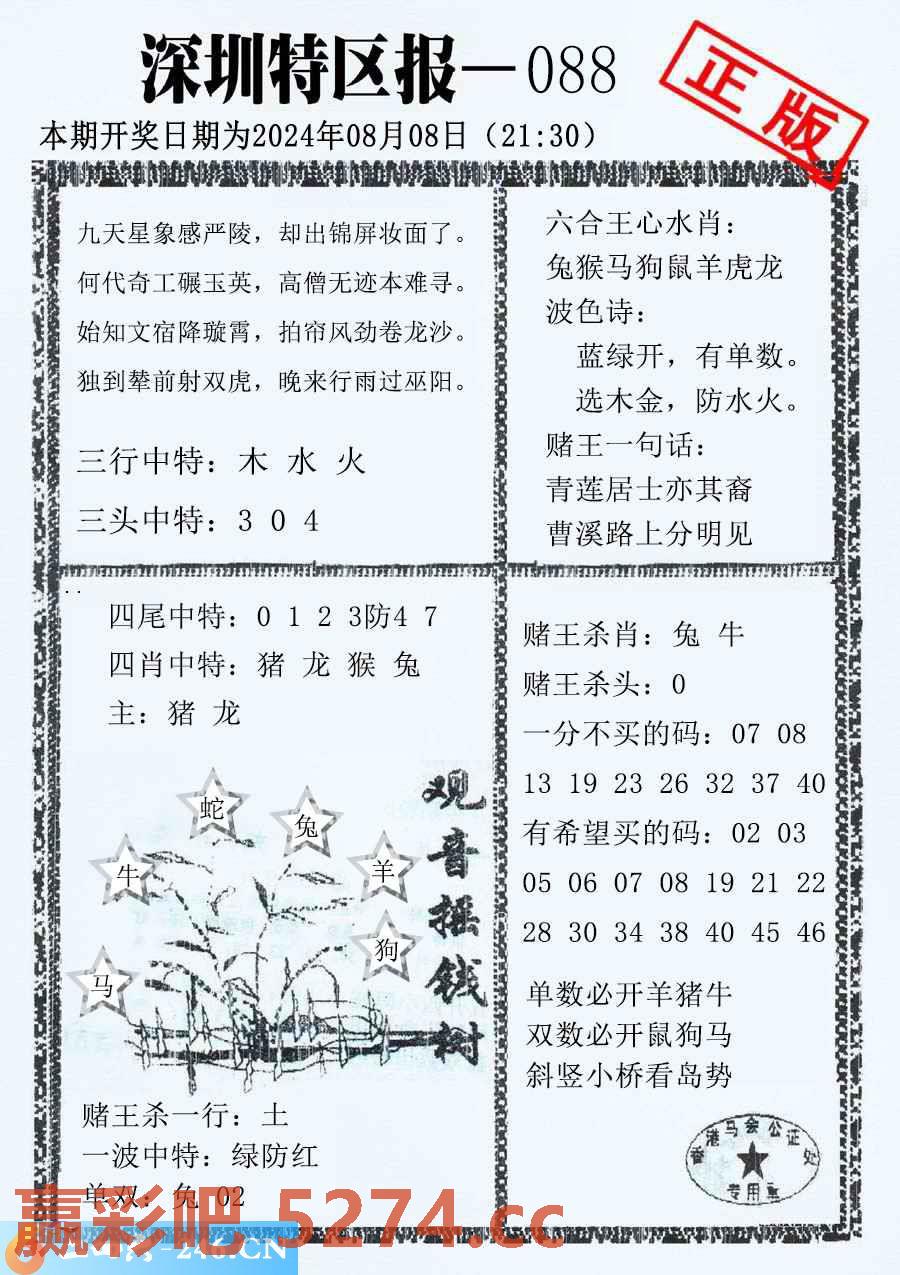 深圳特区报—088
正版
本期开奖日期为2024年08月08日（21:30）
九天星象感严陵，却出锦屏妆面了。
何代奇工碾玉英，高僧无迹本难寻。
始知文宿降璇霄，拍帘风劲卷龙沙。
独到辇前射双虎，晚来行雨过巫阳。
三行中特：木 水 火
三头中特：3 0 4
六合王心水肖：
兔猴马狗鼠羊虎龙
波色诗：
蓝绿开，有单数。
选木金，防水火。
赌王一句话：
青莲居士亦其裔
曹溪路上分明见
四尾中特：0 1 2 3防4 7
四肖中特：猪 龙 猴 兔
主：猪 龙
蛇
兔
牛
羊
狗
马
观音摇钱树
赌王杀一行：土
一波中特：绿防红
单双：兔 02
赌王杀肖：兔 牛
赌王杀头：0
一分不买的码：07 08
13 19 23 26 32 37 40
有希望买的码：02 03
05 06 07 08 19 21 22
28 30 34 38 40 45 46
单数必开羊猪牛
双数必开鼠狗马
斜竖小桥看岛势
香港马会公证处
专用章
赢彩吧 5274.cc
-246.CN